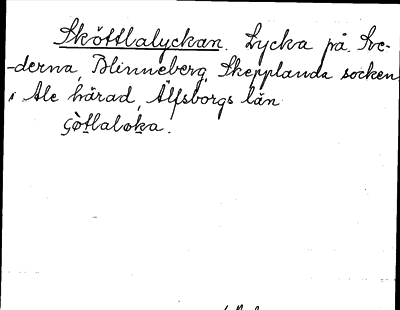 Sköttlalyckan. Lycka på Sve-
-derna, Blinneberg, Skepplanda socken
i Ale härad, Älfsborgs län